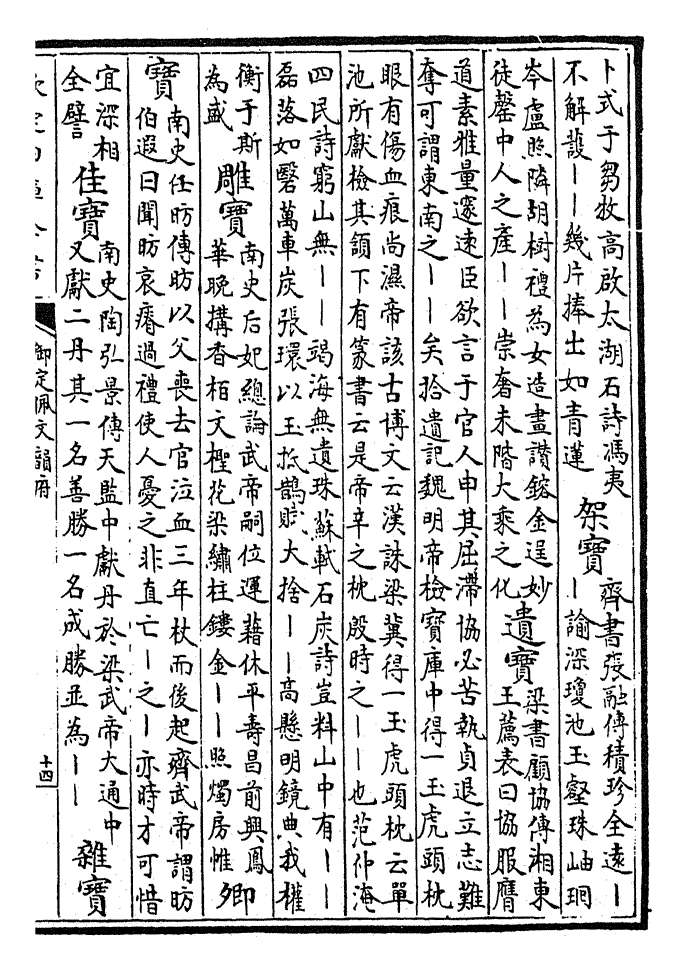 卜式于芻牧高啟太湖石詩馮夷
不解䕶——幾片捧出如青蓮
架寶
齊書張融傳積珍全遠—
—諭深瓊池玉壑珠岫珥
岑盧照隣胡樹禮為女造畫讚鎔金逞妙
徒罄中人之產——崇奢未階大乘之化
遺寶
梁書顧協傳湘東
王薦表曰協服膺
道素雅量邃遠臣欲言于官人申其屈滯協必苦執貞退立志難
奪可謂東南之——矣拾遺記魏明帝檢寶庫中得一玉虎頭枕
眼有傷血痕尚濕帝該古博文云漢誅梁冀得一玉虎頭枕云單
池所獻檢其頷下有篆書云是帝辛之枕殷時之——也范仲淹
四民詩窮山無——竭海無遺珠蘇軾石炭詩豈料山中有——
磊落如瑿萬車炭張環以玉抵鵲賦大捨——高懸明鏡典我權
衡于斯
為盛
雕寶
南史后妃總論武帝嗣位運藉休平壽昌前興鳳
華晚搆香栢文檉花梁繡柱鏤金——照燭房帷
卿
寶
南史任昉傳昉以父喪去官泣血三年杖而後起齊武帝謂昉
伯遐曰聞昉哀瘠過禮使人憂之非直亡—之—亦時才可惜
宜深相
全譬
佳寶
南史陶弘景傳天監中獻丹於梁武帝大通中
又獻二丹其一名善勝一名成勝並為——
雜寶
欽定四庫全書
御定佩文韻府
十四